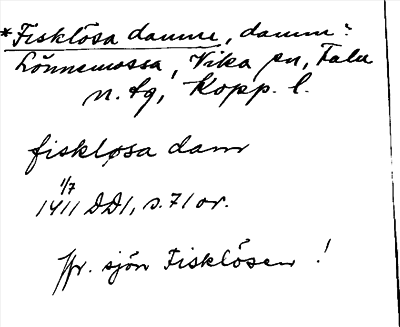 *Fisklösa damme, damm i
Lönnemossa, Vika sn, Falu
n. tg, Kopp. l.
fiskløsa dam
1/7
1411 DD1, s. 71 or.
Jfr. sjön Fisklösen !